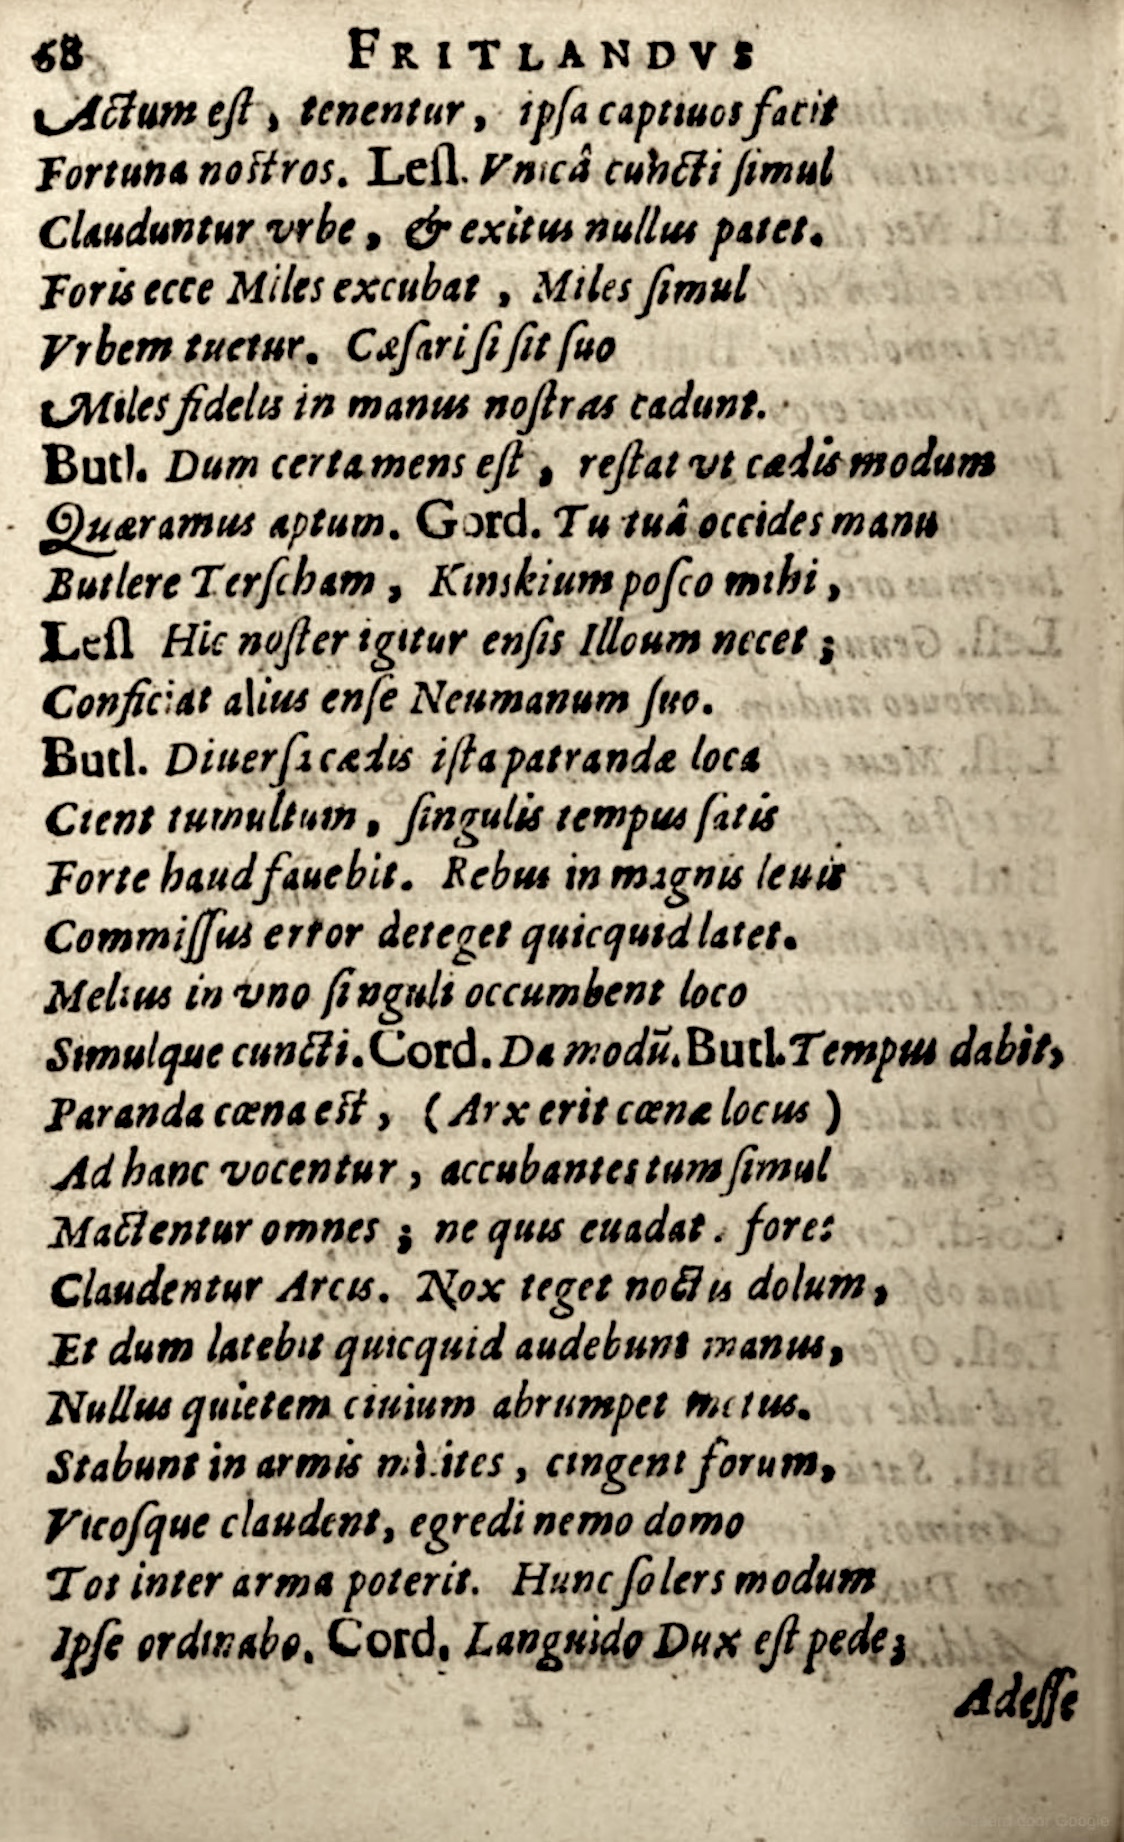 68 FRITLANDVS
Actum eſt, tenentur, ipſa captiuos facit
Fortuna noſtros. Leſl. Vnicâ cuncti ſimul
Clauduntur vrbe, & exitus nullus patet.
Foris ecce Miles excubat, Miles ſimul
Vrbem tuetur. Cæſari ſi ſit ſuo
Miles fidelis in manus noſtras cadunt.
Butl. Dum certa mens eſt, reſtat vt cædis modum
Quæramus aptum. Gord. Tu tuâ occides manu
Butlere Terſcham, Kinskium poſco mihi,
Leſl Hic noſter igitur enſis Illoum necet;
Conficiat alius enſe Neumanum ſuo.
Butl. Diuerſa cædis iſta patrandæ loca
Cient tumultum, ſingulis tempus ſatis
Forte haud fauebit. Rebus in magnis leuis
Commiſſus error deteget quicquid latet.
Melius in vno ſinguli occumbent loco
Simulque cuncti. Cord. Da modū. Butl. Tempus dabit,
Paranda cœna eſt, (Arx erit cœnæ locus)
Ad hanc vocentur, accubantes tum ſimul
Mactentur omnes; ne quis euadat. fores
Claudentur Arcis. Nox teget noctis dolum,
Et dum latebit quicquid audebunt manus,
Nullus quietem ciuium abrumpet metus.
Stabunt in armis milites, cingent forum,
Vicoſque claudent, egredi nemo domo
Tot inter arma poterit. Hunc ſolers modum
Ipſe ordinabo. Cord. Languido Dux eſt pede;
Adeſſe